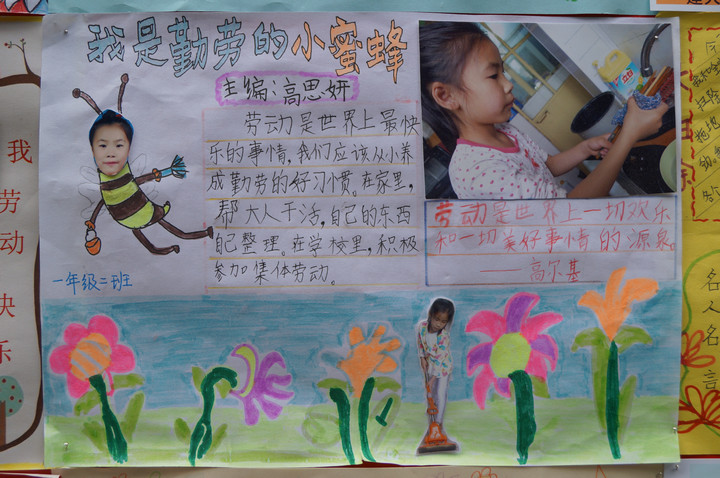 我是勤劳的小蜜蜂
主编:高思妍
劳动是世界上最快
乐的事情,我们应该从小养
成勤劳的好习惯。在家里,
帮大人干活,自己的东西
自己整理。在学校里,积极
参加集体劳动。
劳动是世界上一切欢乐
和一切美好事情的源泉。
——高尔基
一年级二班
我劳动快乐
名人名言